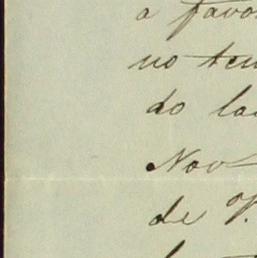 a favo
no ten
do la
Nov
de V.